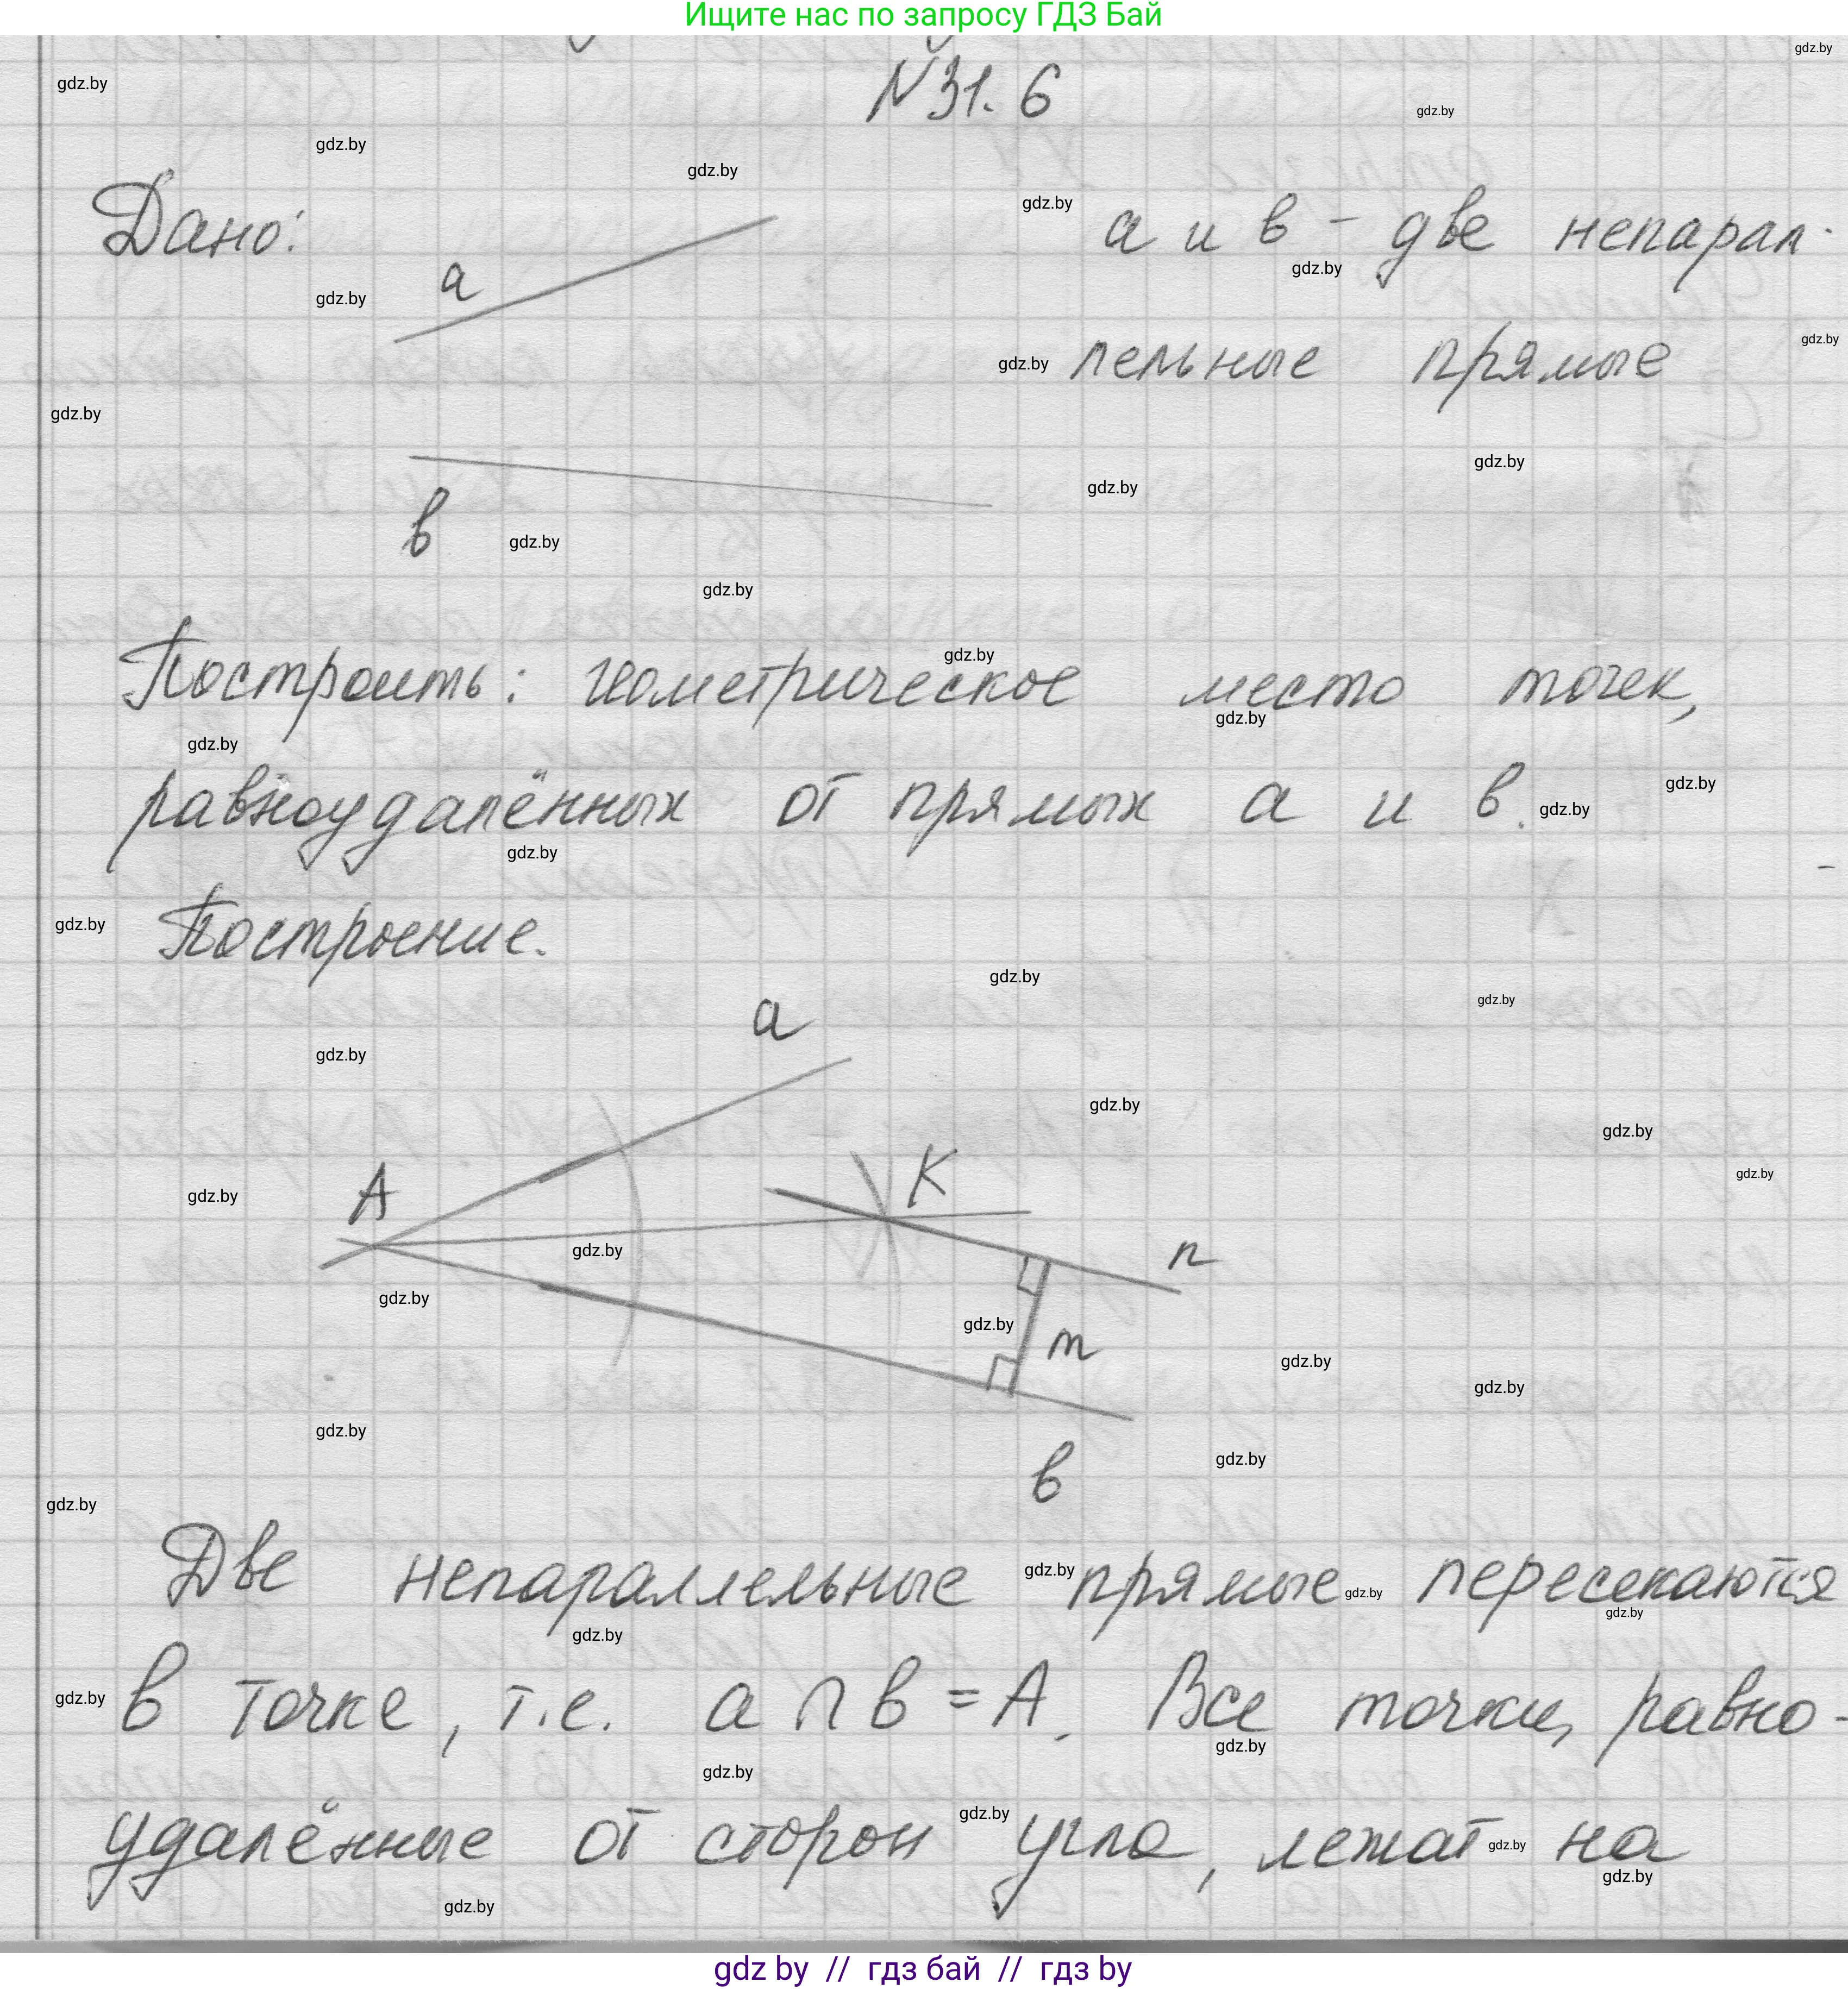 Ищите нас по запросу ГДЗ Бай
N 31. 6
Дано:
а
а и в - две непарал-
лельные прямые
в
Построить: геометрическое место точек,
равноудалённых от прямых а и в.
Построение.
а
A
K
n
m
в
Две непараллельные прямые пересекаются
в точке, т.е. а ∩ в = A. Все точки, равно-
удалённые от сторон угла, лежат на
gdz by // гдз бай // гдз by